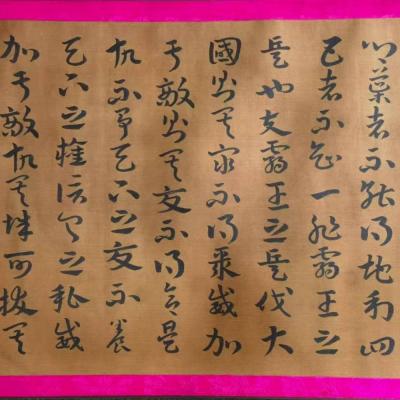 鄉導者不能得地利四
五者不知一非霸王之
兵也夫霸王之兵伐大
國則其眾不得聚威加
于敵則其交不得合是
故不爭天下之交不養
天下之權信己之私威
加于敵故其城可拔其